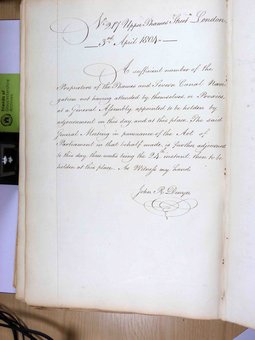 Upper Thames Street London
3rd April 1804
A sufficient number of the
Proprietors of the Thames and Severn Canal Navi
gation not having attended by themselves or Proxies,
at a General Assembly appointed to be holden by
adjournment on this day, and at this place. The said
General Meeting in pursuance of the Act of
Parliament in that behalf made, is further adjourned
to this day three weeks being the 24th instant then to be
holden at this place. As Witness my hand
John R. Denyer